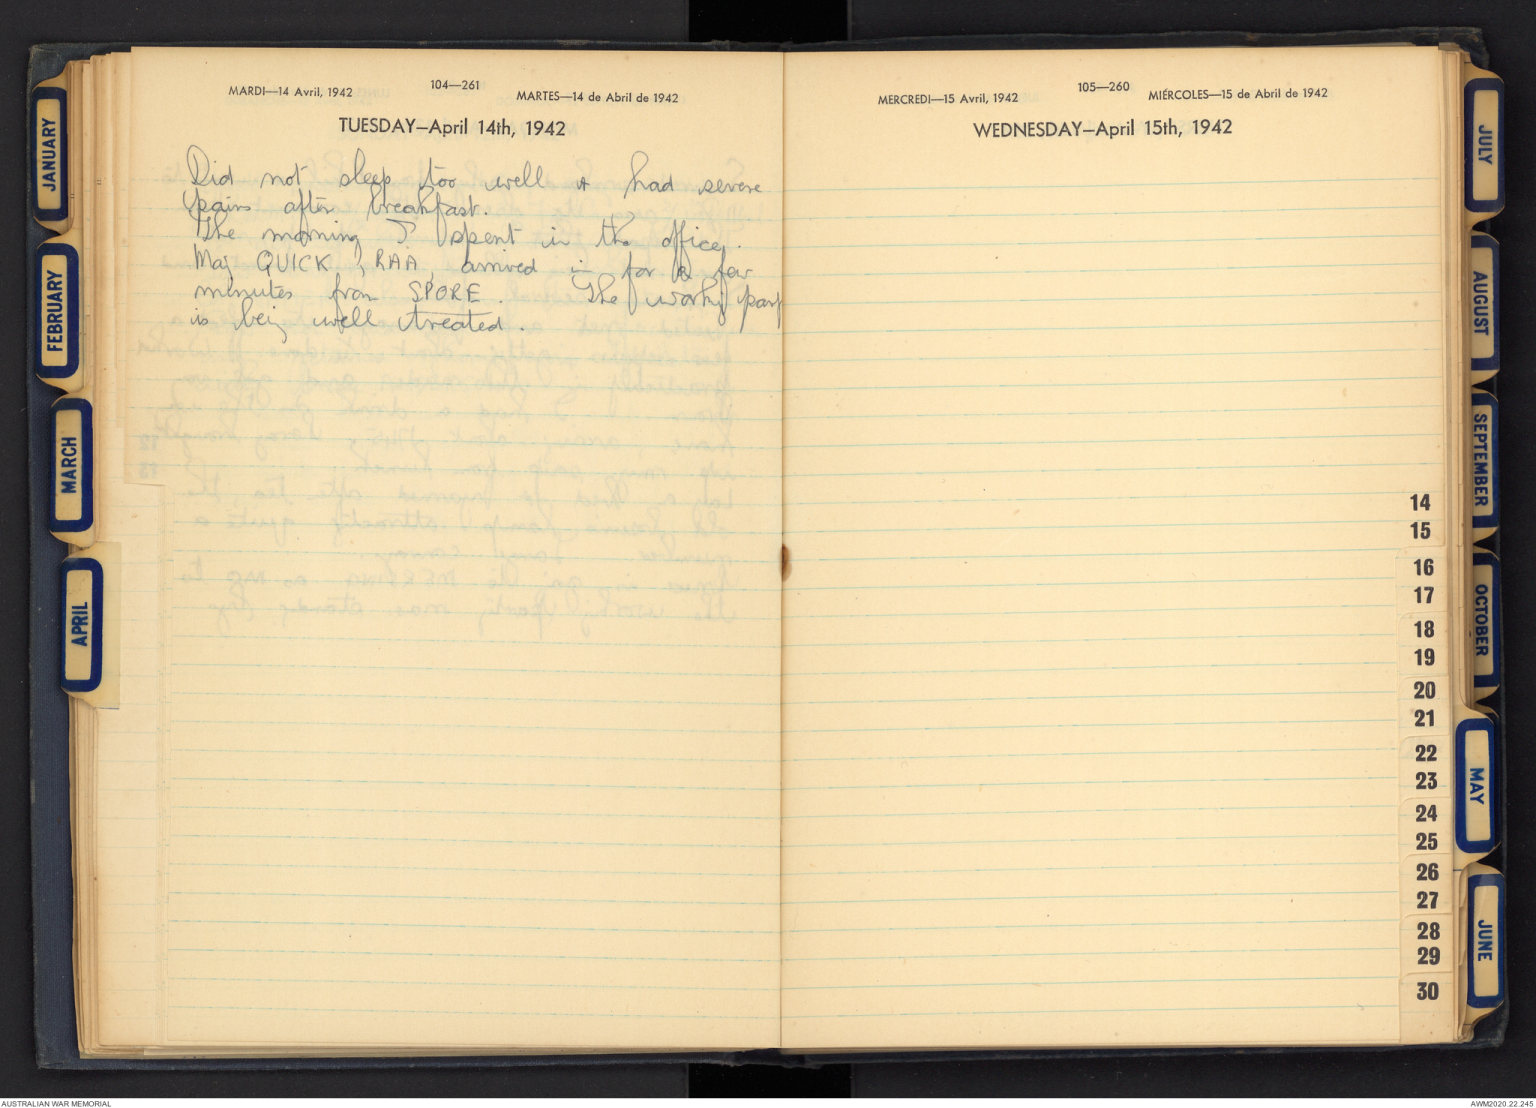 MARDI—14 Avril, 1942
104—261
MARTES—14 de Abril de 1942
TUESDAY—April 14th, 1942
Did not sleep too well & had severe
pains after breakfast.
The morning I spent in the office.
Maj QUICK, RAA, arrived in for a few
minutes from SPORE. The workg party
is being well treated.
MERCREDI—15 Avril, 1942
105—260
MIÉRCOLES—15 de Abril de 1942
WEDNESDAY—April 15th, 1942
JANUARY
FEBRUARY
MARCH
APRIL
JULY
AUGUST
SEPTEMBER
OCTOBER
MAY
JUNE
14
15
16
17
18
19
20
21
22
23
24
25
26
27
28
29
30
AUSTRALIAN WAR MEMORIAL
AWM2020.22.245